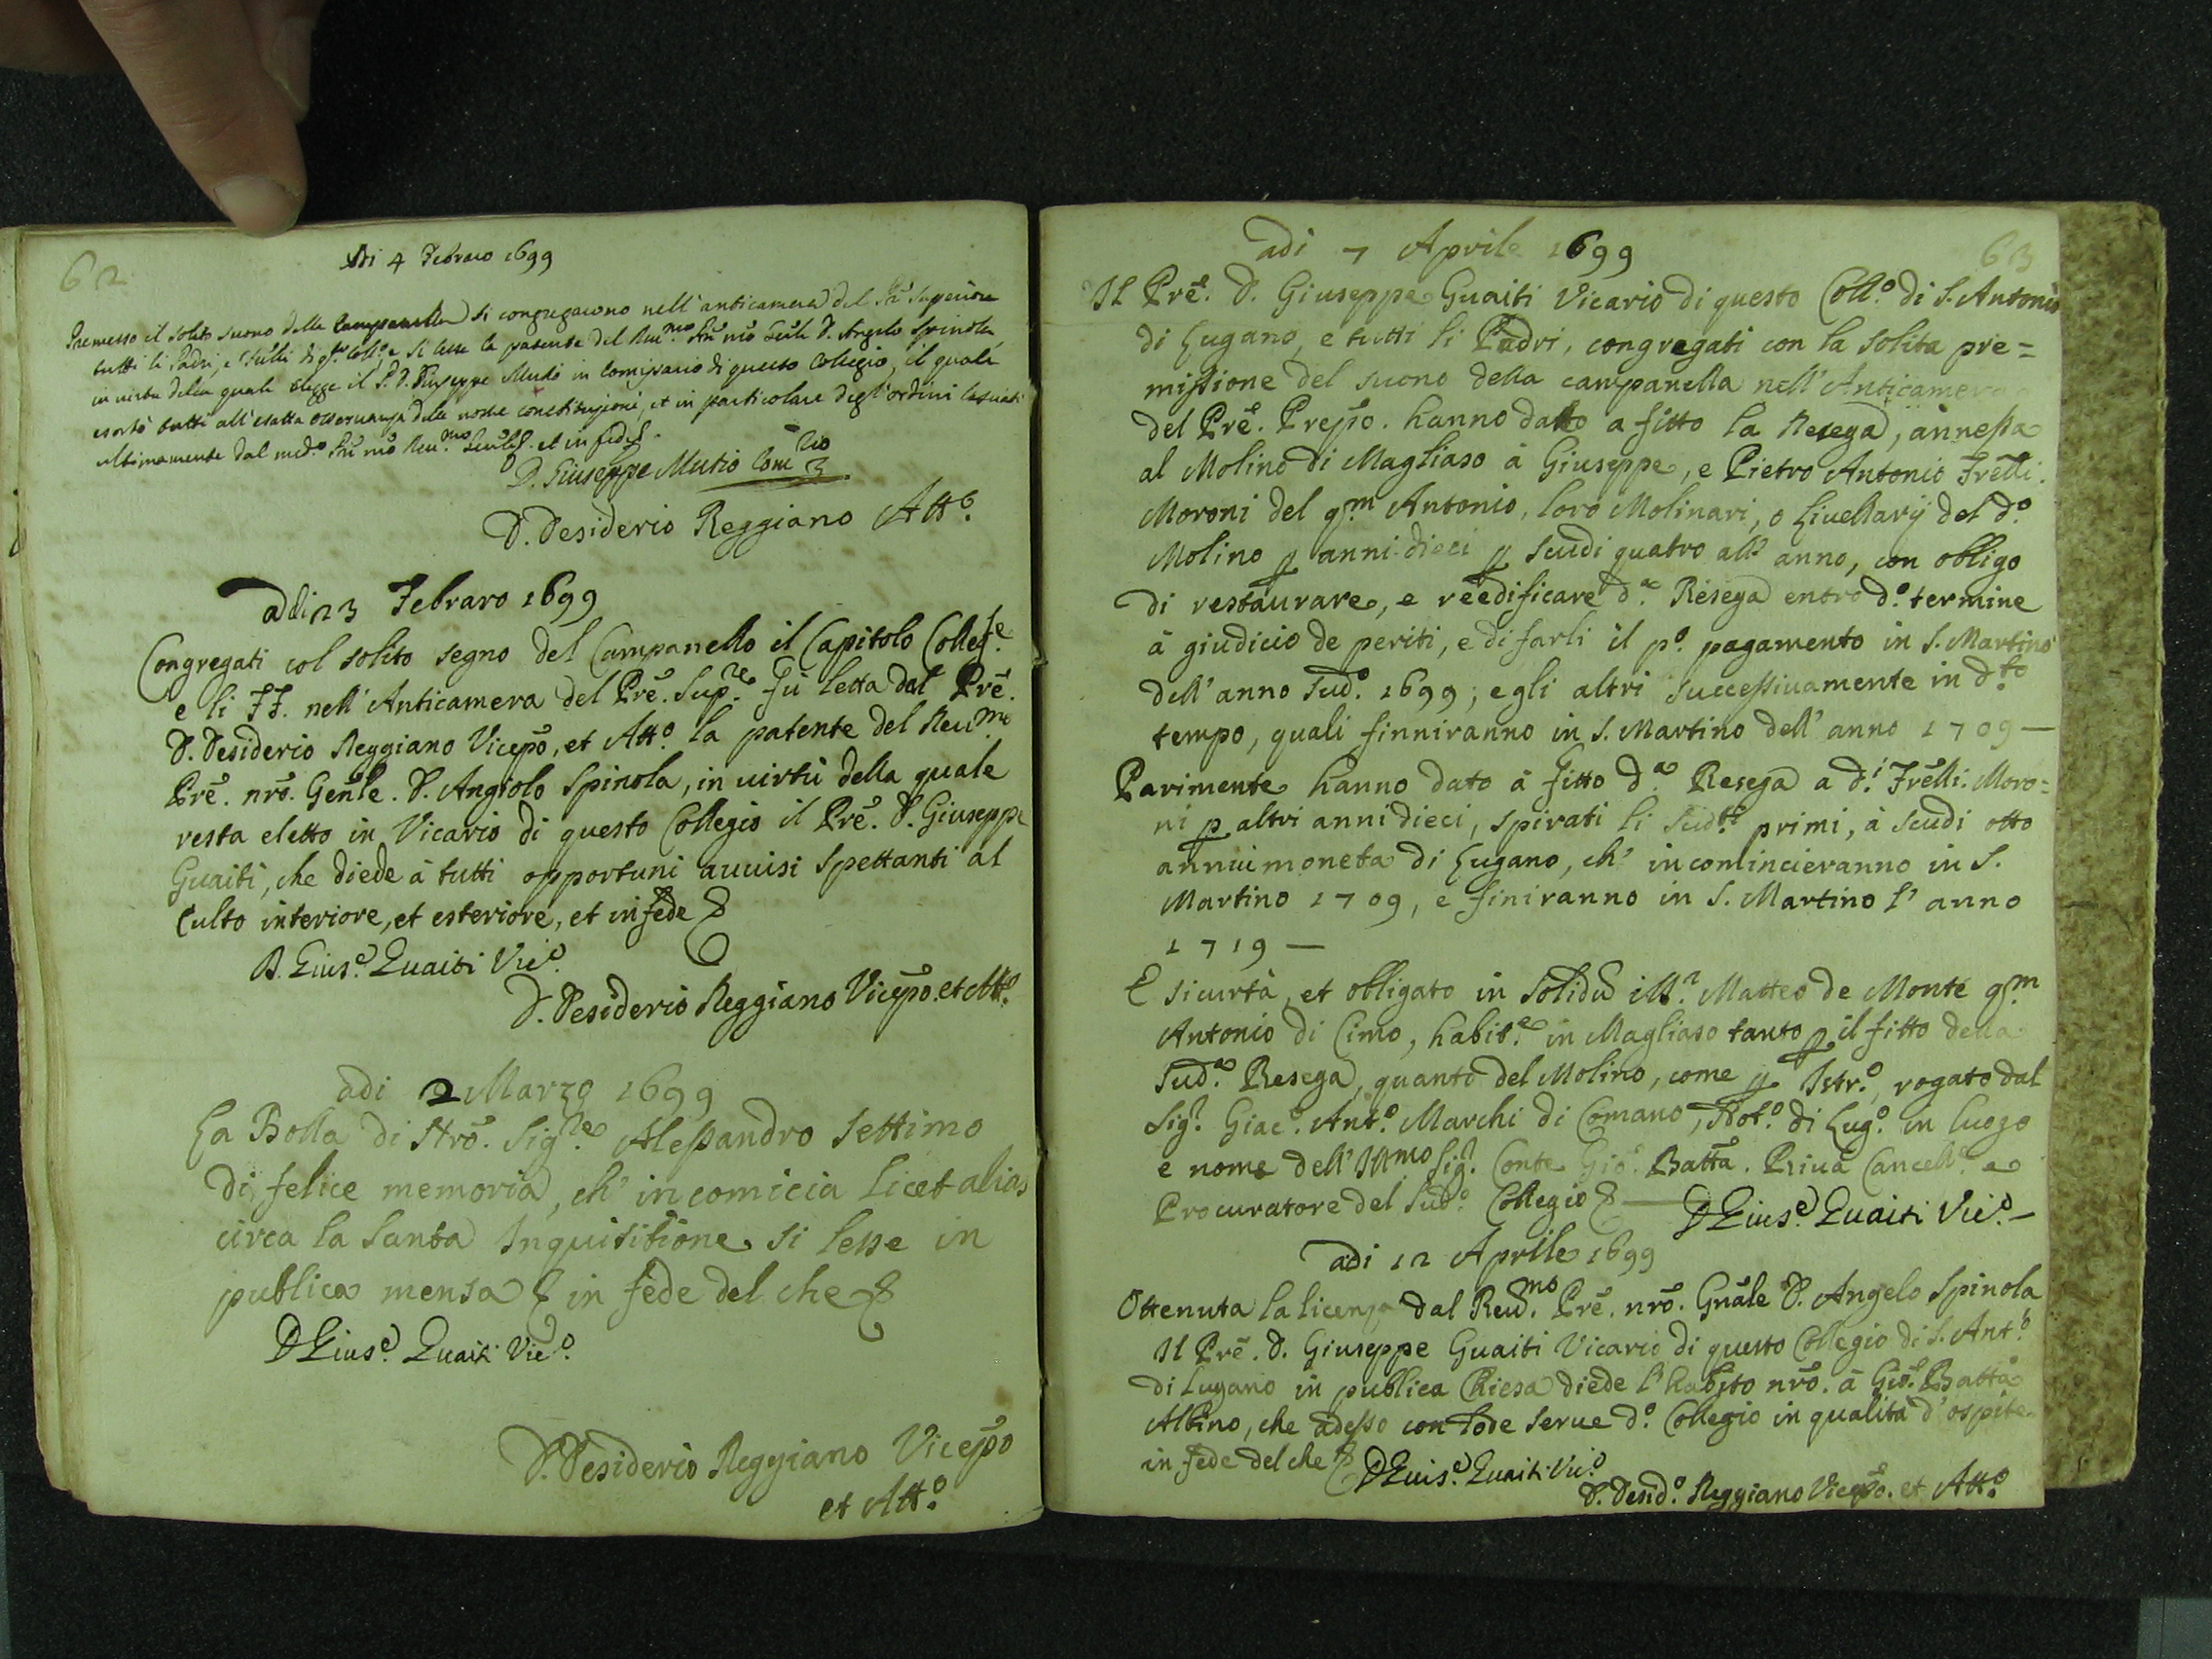 62
Adi 4 Febraro 1699
Premesso il solito suono della Campanella si congregarono nell'anticamera del Prē Superiore
tutti li Padri, e Frēlli di qto Collo, e si lesse la patente del Reu.mo Prē nrō Gēnle D. Angelo Spinola,
in uirtù della quale elegge il P. D. Giuseppe Mutio in Comissario di questo Collegio, il quale
esortò tutti all'esatta osseruanza delle nostre constitutioni, et in particolare degl'ordini lasciati
ultimamente dal med.o Prē nrō Reu.mo et in fede
D. Giuseppe Mutio Com.rio
D. Desiderio Reggiano Att.o
addi 23 Febraro 1699
Congregati col solito segno del Campanello il Capitolo Colleg.le
e li FF. nell'Anticamera del Prē. Sup.re fù letta dal Prē.
D. Desiderio Reggiano Vicepō, et Att.o la patente del Reu.mo
Prē. nrō. Genle. D. Angiolo Spinola, in uirtù della quale
resta eletto in Vicario di questo Collegio il Prē. D. Giuseppe
Guaiti, che diede à tutti opportuni auuisi spettanti al
Culto interiore, et esteriore, et in fede &
D. Gius.e Guaiti Vic.o
D. Desiderio Reggiano Vicepō. et Att.o
adi 2 Marzo 1699
La Bolla di Nrō. Sig.re Alessandro Settimo
di felice memoria, ch' incomicia Licet alias
circa la Santa Inquisitione si lesse in
publica mensa & in fede del che &
D Gius.e Guaiti Vic.o
D. Desiderio Reggiano Vicepō
et Att.o
63
adi 7 Aprile 1699
Il Prē. D. Giuseppe Guaiti Vicario di questo Coll.o di S. Antonio
di Lugano, e tutti li Padri, congregati con la solita pre=
missione del suono della campanella nell'Anticamera
del Prē. Prepō. hanno datto a fitto la Resega, annessa
al Molino di Magliaso à Giuseppe, e Pietro Antonio Frēlli.
Moroni del q.m Antonio, loro Molinari, o Liuellarÿ del d.o
Molino p anni dieci p scudi quatro all'anno, con obligo
di restaurare, e reedificare d.a Resega entro d.o termine
à giudicio de periti, e di farli il p.o pagamento in S. Martino
dell'anno sud.o 1699; e gli altri successiuamente in d.to
tempo, quali finniranno in S. Martino dell'anno 1709 —
Parimente hanno dato à fitto d.a Resega a d.i Frēlli. Moro=
ni p altri anni dieci, spirati li sud.ti primi, à scudi otto
annui moneta di Lugano, ch' incomincieranno in S.
Martino 1709, e finiranno in S. Martino l'anno
1719 —
E sicurtà, et obligato in solidū il S.r Matteo de Monte q.m
Antonio di Cimo, habit.e in Magliaso tanto p il fitto della
sud.a Resega, quanto del Molino, come p Istr.o rogato dal
Sig.r Giac.o Ant.o Marchi di Comano, Not.o di Lug.o in luogo
e nome dell'Ill.mo Sig.r Conte Gio. Batta. Riua Cancell.e e
Procuratore del sud.o Collegio & —
D Gius.e Guaiti Vic.o —
adi 12 Aprile 1699
Ottenuta la licenza dal Reu.mo Prē. nrō. Gnāle D. Angelo Spinola
Il Prē. D. Giuseppe Guaiti Vicario di questo Collegio di S. Ant.o
di Lugano in publica Chiesa diede l'habito nrō. à Gio. Batta
Albino, che adesso con lode serue d.o Collegio in qualità d'ospite
in fede del che & D Gius.e Guaiti Vic.o
D. Desid.o Reggiano Vicepō. et Att.o